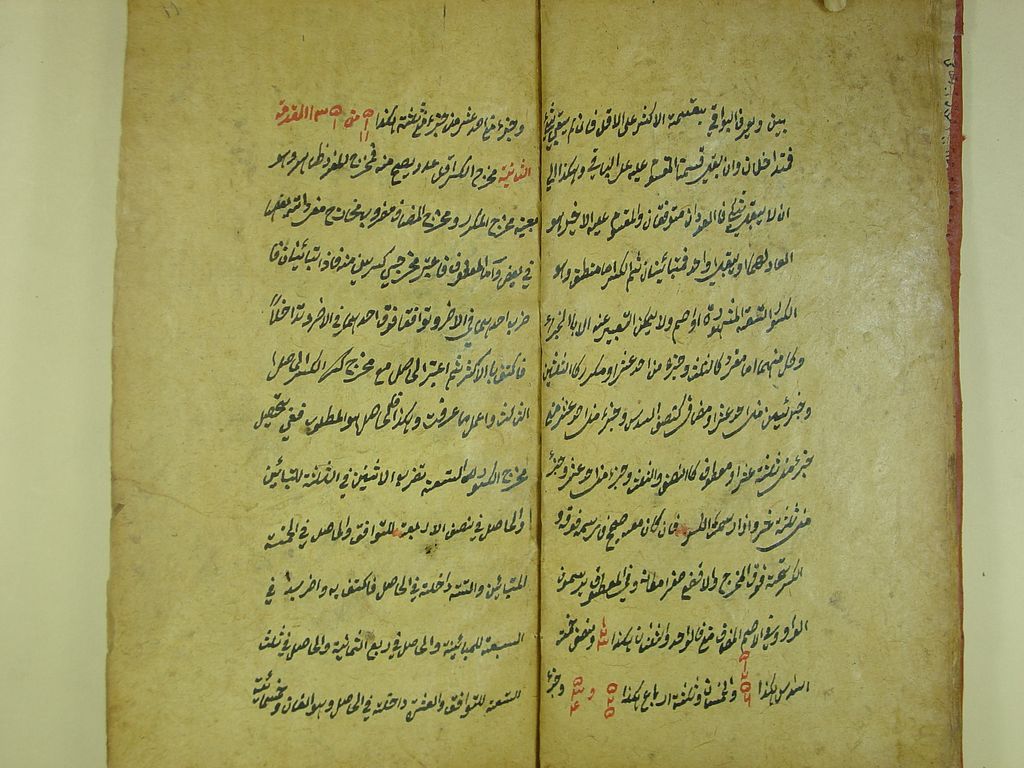 بين ويعرف البواقي بقسمة الاكثر على الاقل فان لم يبق شئ
فمتداخلان وان بقي قسمنا المقسوم عليه على الباقي وهكذا الى
ان لا يبقى شئ فالعددان متوافقان والمقسوم عليه الاخير هو
العاد لهما او يبقى واحد فمتباينان ثم الكسر اما منطق وهو
الكسور التسعة المشهورة او اصم ولا يمكن التعبير عنه الا بالجزء
وكل منهما اما مفرد كالثلث وجزء من احد عشر او مكرر كالثلثين
وجزئين من احد عشر او مضاف كنصف السدس وجزء من احد عشر من
جزء من ثلثة عشر او معطوف كالنصف والثلث وجزء من احد عشر وجزء
من ثلثة عشر واذا رسمت الكسر فان كان معه صحيح فارسمه فوق و
الكسر تحته فوق المخرج والا فضع صفرا مكانه وفي المعطوف يرسمون
الواو وفي الاصم المضاف من فالواحد والثلثان هكذا ونصف خمسة
اسداس هكذا والخمسان وثلثة ارباع هكذا و وجزء
وجزء من احد عشر من جزء من ثلثة هكذا من ١٣ المقدمة
الثانية مخرج الكسر اقل عدد يصح منه فمخرج المفرد ظاهر وهو
بعينه مخرج المكرر ومخرج المضاف مضروب مخارج مفرداته بعضها
في بعض واما المعطوف فاعتبر مخرجي كسرين منه فان تباينا فا
ضرب احدهما في الاخر وتوافقا فوفق احدهما في الاخر وتداخلا
فاكتف بالاكثر ثم اعتبر الحاصل مع مخرج الكسر
الثالث واعمل ما عرفت وهكذا فالحاصل هو المطلوب ففي تحصيل
مخرج الكسور التسعة تضرب الاثنين في الثلثة للتباين
والحاصل في نصف الاربعة للتوافق والحاصل في الخمسة
للتباين والستة داخلة في الحاصل فاكتف به واضربه في
السبعة للمباينة والحاصل في ربع الثمانية والحاصل في ثلث
التسعة للتوافق والعشرة داخلة في الحاصل وهو الفان وخمسمائة